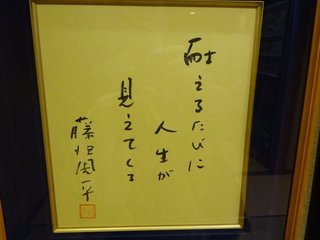 耐えるたびに
人生が
見えてくる
藤田周一平